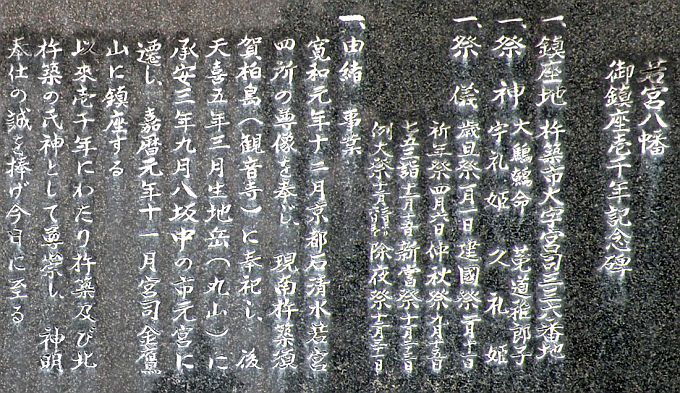 若宮八幡
御鎮座壱千年記念碑
一、鎮座地 杵築市大字宮司三三六番地
一、祭神 大鷦鷯命 菟道稚郎子
宇礼姫 久礼姫
一、祭儀 歳旦祭一月一日 建國祭二月十一日
祈年祭四月六日 仲秋祭
七五三詣十一月十五日 新嘗祭十一月二十三日
例大祭 除夜祭十二月三十一日
一、由緒 事業
寛和元年十二月京都石清水若宮
四所の尊像を奉じ、現南杵築須
賀柏島(観音寺)に奉祀し、後
天喜五年三月生地岳(丸山)に
承安三年九月八坂中の市元宮に
遷し、嘉暦元年十一月宮司金鷹
山に鎮座する
以来壱千年にわたり杵築及び北
杵築の氏神として尊崇し、神明
奉仕の誠を捧げ今日に至る